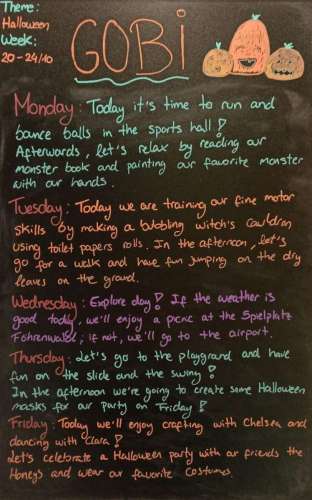 Theme:
Halloween
Week:
20-24/10
GOBi
Monday: Today it's time to run and
bounce balls in the sports hall!
Afterwards, let's relax by reading our
monster book and painting our favorite monster
with our hands.
Tuesday: Today we are training our fine motor
skills by making a bubbling witch's cauldron
using toilet papers rolls. In the afternoon, let's
go for a walk and have fun jumping on the dry
leaves on the ground.
Wednesday: Explore day! If the weather is
good today, we'll enjoy a picnic at the Spielplatz
Föhrenwald; if not, we'll go to the airport.
Thursday: Let's go to the playground and have
fun on the slide and the swing!
In the afternoon we're going to create some Halloween
masks for our party on Friday!
Friday: Today we'll enjoy crafting with Chelsea and
dancing with Clara!
Let's celebrate a Halloween party with our friends the
Honeys and wear our favorite costumes.